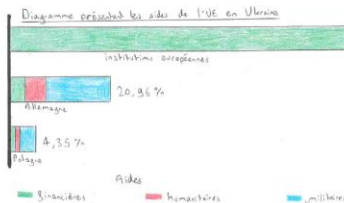 Diagramme présentant les aides de l'UE en Ukraine
institutions européennes
20,96 %
Allemagne
4,35 %
Pologne
Aides
financières
humanitaires
militaires